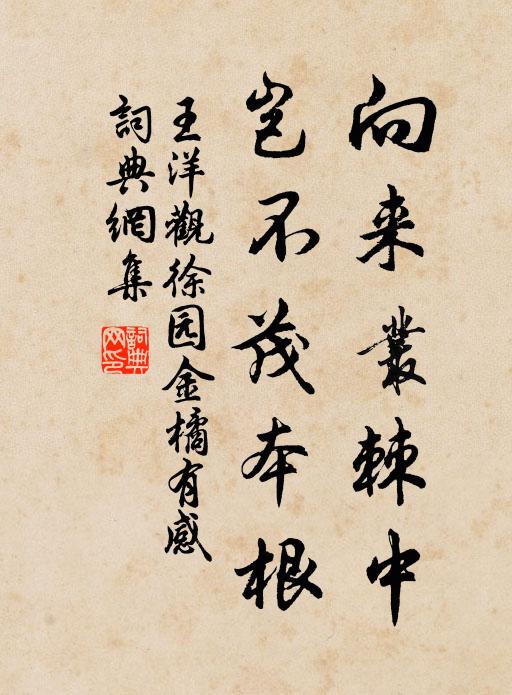 向来叢棘中
岂不茂本根
王洋觀徐园金橘有感
詞典網集
詞典網印